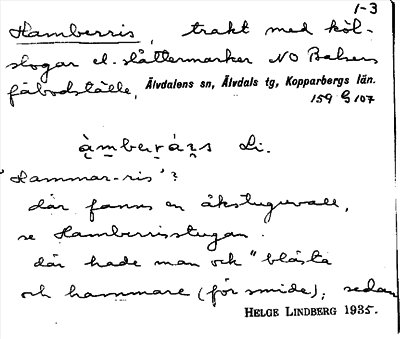 1-3
Hamberris, trakt med höl-
slogar el. slåttermarker NO Balsens
fäbodställe, Älvdalens sn, Älvdals tg, Kopparbergs län.
159 G 107
àmberás Li.
'Hammar-ris'?
där fanns en åkstuguvall,
se Hamberrisstugan.
där hade man ock "blästa
och hammare (för smide); sedan
HELGE LINDBERG 1935.